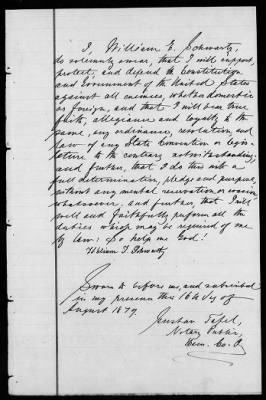 I, William T. Schwartz,
do solemnly swear, that I will support,
protect, and defend the Constitution
and Government of the United States
against all enemies, whether domestic
or foreign, and that I will bear true
faith, allegiance and loyalty to the
same, any ordinance, resolution, and
law of any State Convention or legis-
lature to the contrary notwithstanding;
and further, that I do this with a
full determination, pledge and purpose,
without any mental reservation or evasion
whatsoever. and further, that I will
well and faithfully perform all the
duties which may be required of me
by law: So help me God!
William T. Schwartz
Sworn to before me, and subscribed
in my presence this 16th day of
August 1879.
Gustav Tafel,
Notary Public,
Ham. Co. O